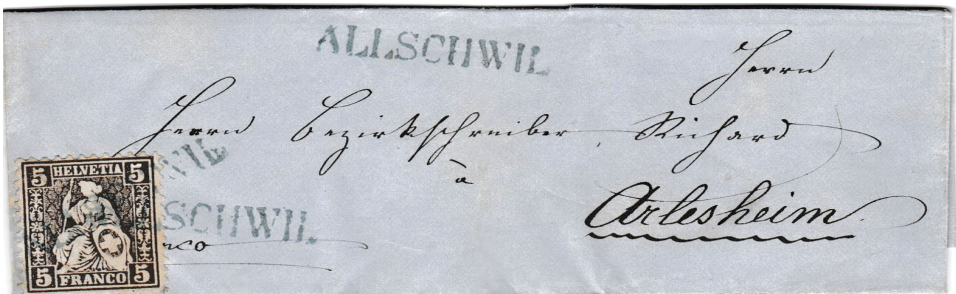 ALLSCHWIL
Herrn
Herrn Bezirkschreiber Richard
à
Arlesheim
WIL
SCHWIL
nco
5 HELVETIA 5
5 FRANCO 5